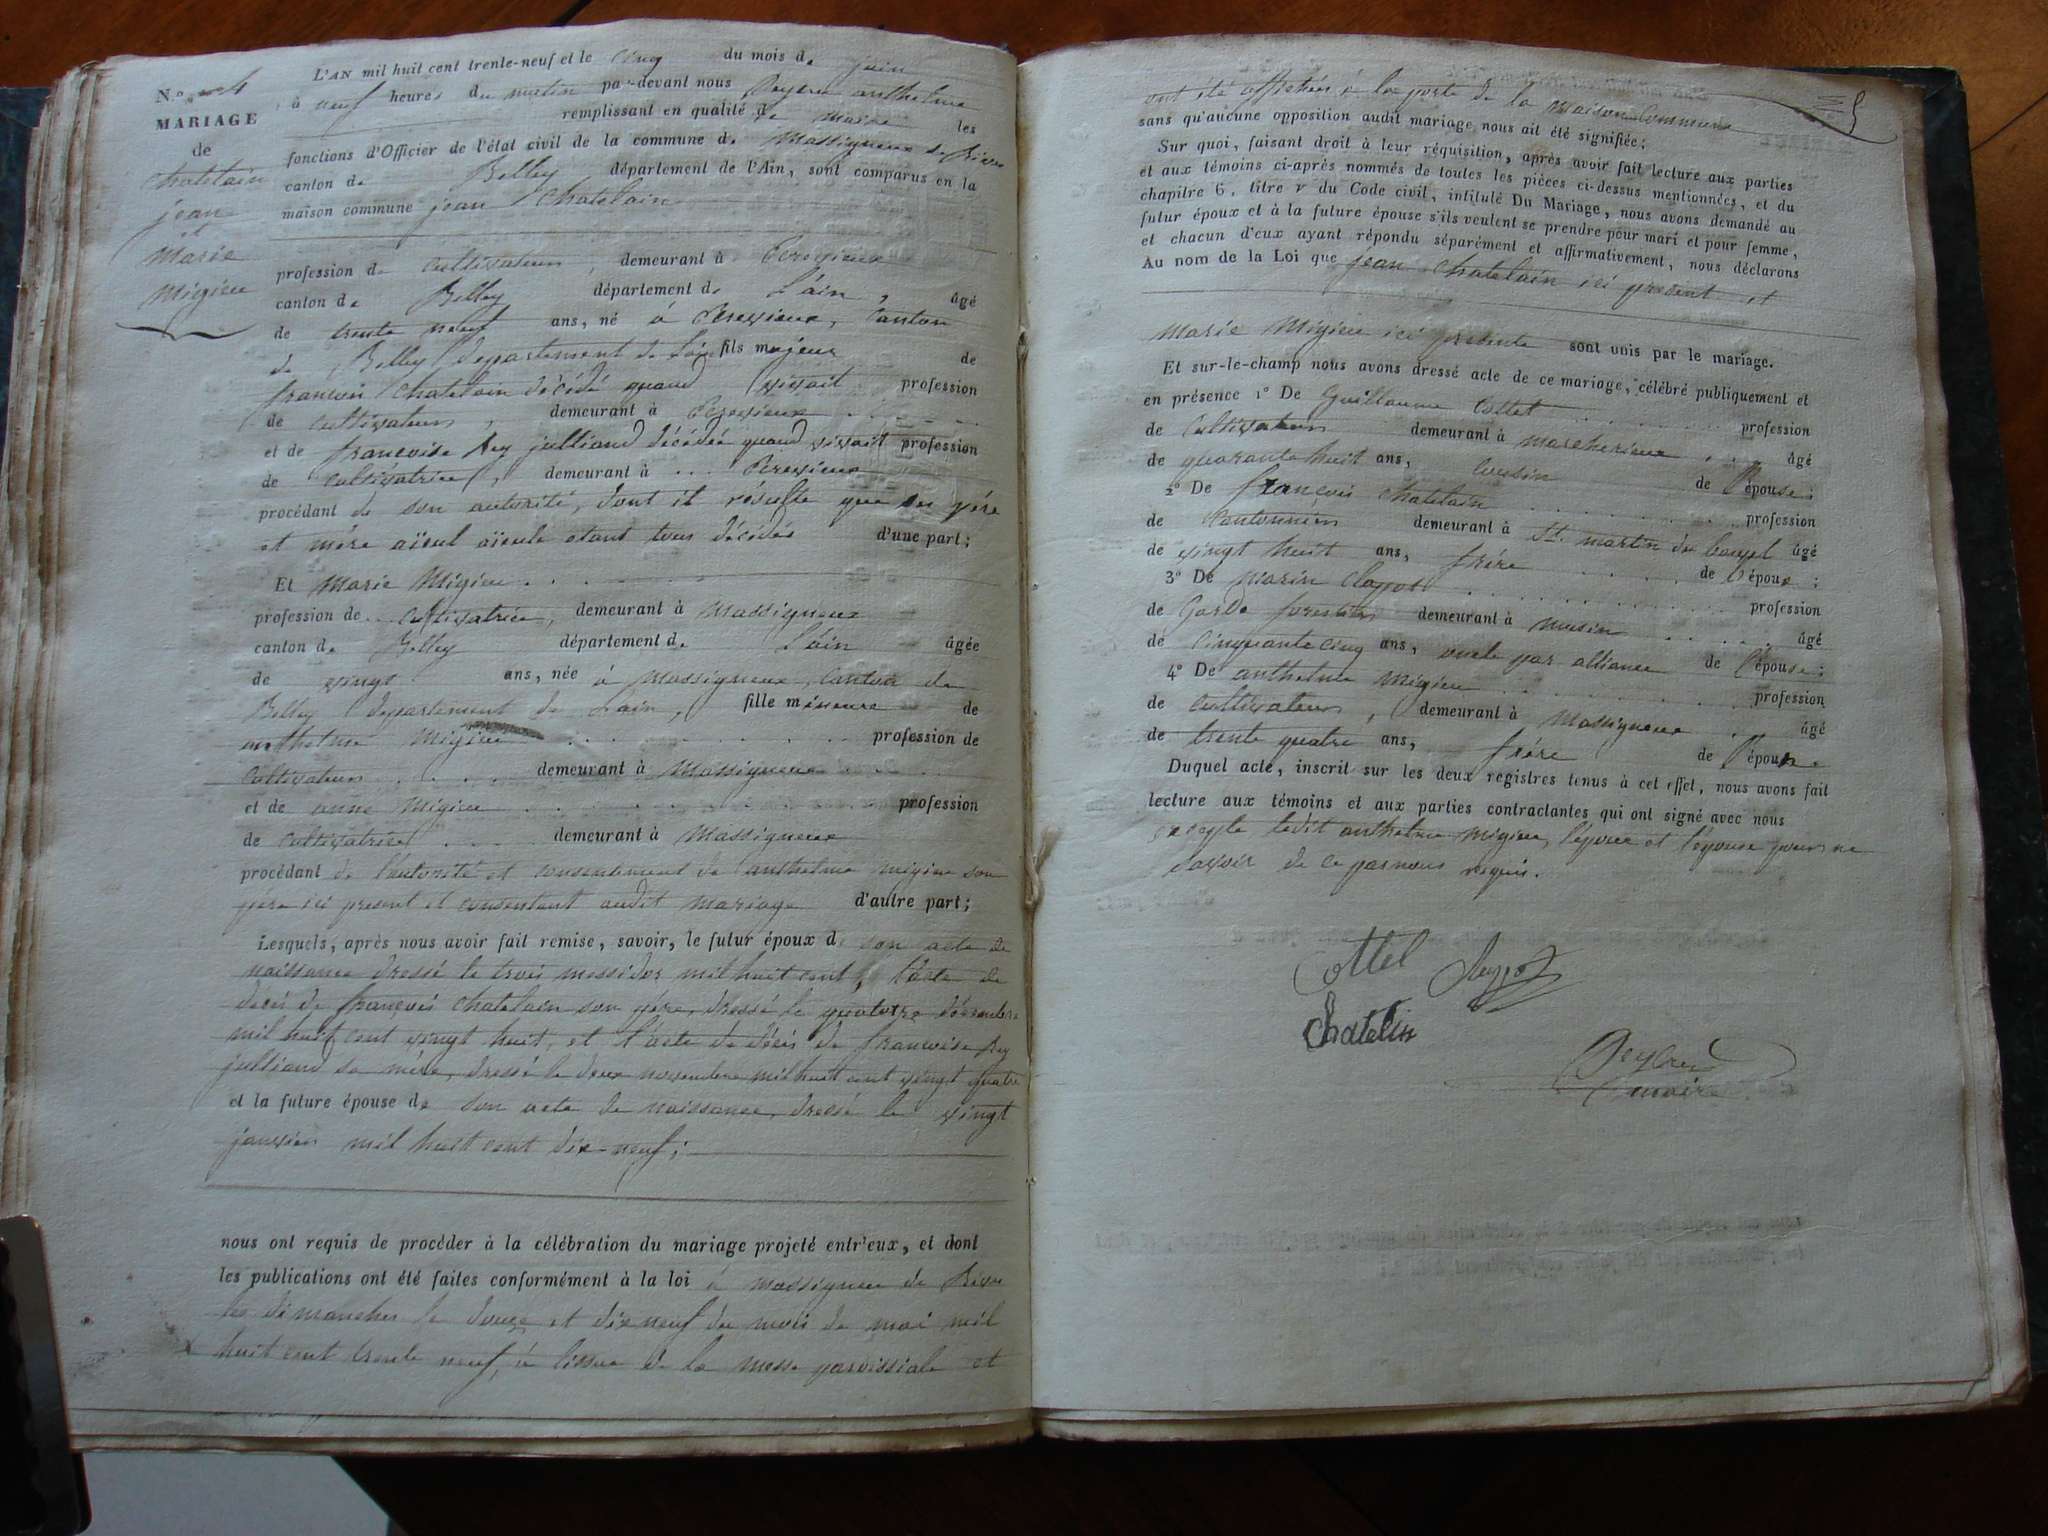 N.° 4
MARIAGE
de
chatelain
jean
et
Marie
Migieu
L'AN mil huit cent trente-neuf et le cinq du mois de juin
à neuf heures du matin par-devant nous anthelme
remplissant en qualité de maire les
fonctions d'Officier de l'état civil de la commune de Massigneux de Rives
canton de Belley département de l'Ain, sont comparus en la
maison commune jean Chatelain
profession de cultivateur, demeurant à Pereyieux
canton de Belley département de L'ain, âgé
de trente neuf ans, né à Pereyieux, Canton
de Belley département de L'ain fils majeur de
françois Chatelain décédé quand vivait profession
de cultivateur, demeurant à Pereyieux
et de francoise Rey julliand décédée quand vivait profession
de cultivatrice, demeurant à ... Pereyieux
procédant de son autorité, dont il résulte que ses pére
et mére aïeul aïeule etant tous décédés d'une part;
Et Marie Migieu
profession de cultivatrice, demeurant à Massigneux
canton de Belley département de L'ain âgée
de vingt ans, née à Massigneux, Canton de
Belley département de L'ain, fille mineure de
anthelme Migieu profession de
cultivateur demeurant à Massigneux
et de anne Migieu profession
de cultivatrice demeurant à Massigneux
procédant de l'autorité et consentement de anthelme migieu son
pére ici present et consentant audit mariage d'autre part;
Lesquels, après nous avoir fait remise, savoir, le futur époux de son acte de
naissance dressé le trois messidor mil huit cent, l'acte de
décés de françois chatelain son pére, dressé le quatorze décembre
mil huit cent vingt huit, et l'acte de décés de francoise Rey
julliand sa mére, dressé le deux novembre mil huit cent vingt quatre
et la future épouse de son acte de naissance, dressé le vingt
janvier mil huit cent dix-neuf;
nous ont requis de procéder à la célébration du mariage projeté entr'eux, et dont
les publications ont été faites conformément à la loi à massigneu de Rive
les dimanches le douze et dix neuf du mois de mai mil
huit cent trente neuf, à lissue de la messe paroissiale et
5
ont été affichées à la porte de la maison Commune
sans qu'aucune opposition audit mariage nous ait été signifiée;
Sur quoi, faisant droit à leur réquisition, après avoir fait lecture aux parties
et aux témoins ci-après nommés de toutes les pièces ci-dessus mentionnées, et du
chapitre 6, titre V du Code civil, intitulé Du Mariage, nous avons demandé au
futur époux et à la future épouse s'ils veulent se prendre pour mari et pour femme,
et chacun d'eux ayant répondu séparément et affirmativement, nous déclarons
Au nom de la Loi que jean chatelain ici present et
Marie Migieu ici presente sont unis par le mariage.
Et sur-le-champ nous avons dressé acte de ce mariage, célébré publiquement et
en présence 1° De Guillaume Cottet profession
de Cultivateur demeurant à marcherieux âgé
de quarante huit ans, Cousin de l'épouse;
2° De françois chatelain profession
de Cantonnier demeurant à St. martin de bavel âgé
de vingt huit ans, frére de l'époux;
3° De marin Clappot profession
de Garde forestier demeurant à musin âgé
de cinquante cinq ans, oncle par alliance de l'épouse;
4° De anthelme migieu profession
de Cultivateur, demeurant à Massigneux âgé
de trente quatre ans, frére de l'épouse.
Duquel acte, inscrit sur les deux registres tenus à cet effet, nous avons fait
lecture aux témoins et aux parties contractantes qui ont signé avec nous
excepte ledit anthelme migieu, l'époux et l'épouse pour ne
savoir de ce par nous requis.
Cottet
Chatelin
maire